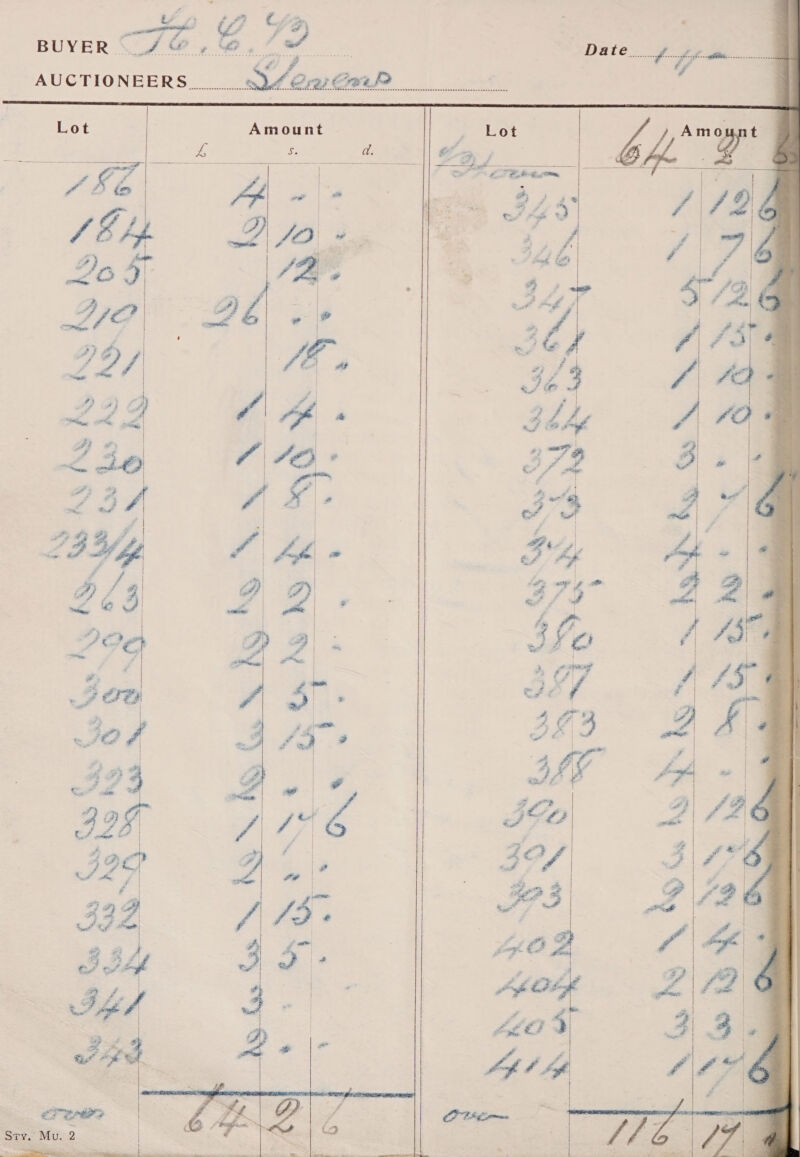 BUYER H. C. B Date
AUCTIONEERS Stevens
Lot Amount
£ s. d.
186 4 - -
184 2 10 -
205 12 .
219 26 . .
221 18 .
222 1 4 .
230 1 10 .
231 1 8 .
233/4 1 4 .
263 2 2 .
299 2 2 -
300 1 5 .
301 3 15 .
323 2 . .
328 1 17 6
329 2 . .
332 1 15 .
334 3 5 .
341 3 - -
343 2 . -
over 64 2 6
Sty. Mu. 2
Lot Amount
64 2 6
345 1 12 6
346 1 7 6
347 5 12 6
361 1 15 .
363 1 10 .
364 1 10 .
372 3 . .
373 2 7 6
374 4 - .
375 2 2 .
380 1 15 .
387 1 15 .
383 2 8 .
388 4 - .
390 2 12 6
391 3 17 6
393 2 12 6
402 1 4 .
404 2 12 6
405 3 3 .
414 1 17 6
over 116 17 "